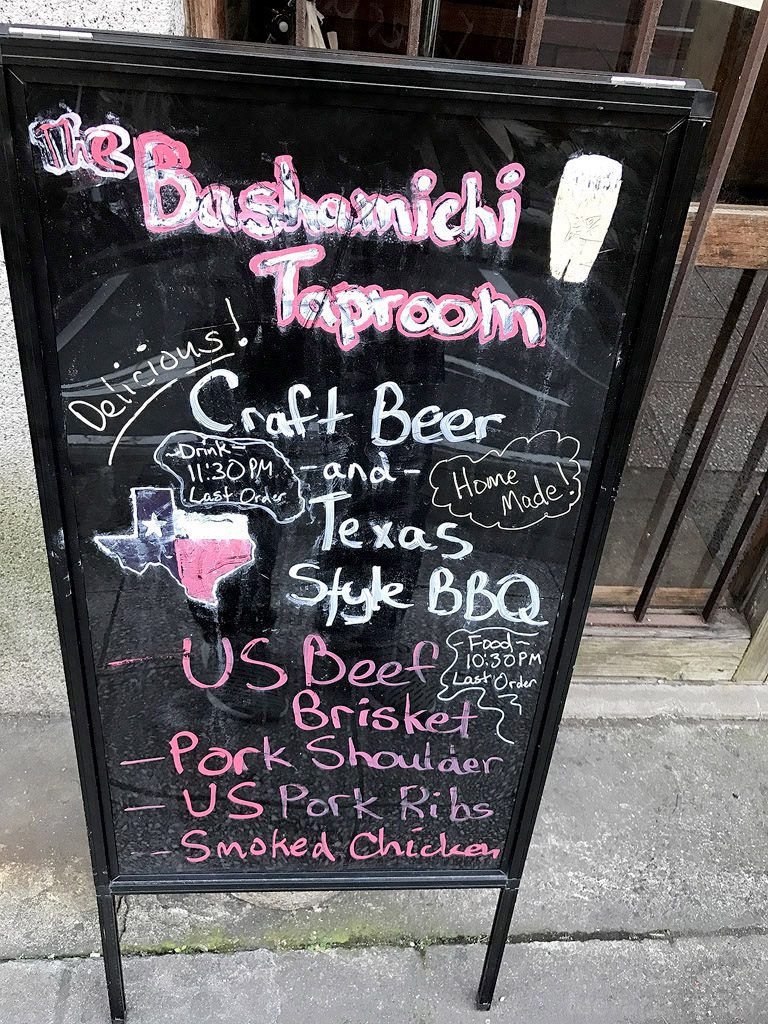 The Bashamichi
Taproom
Delicious!
Craft Beer
~Drink~
11:30 PM
Last Order
-and-
Home
Made!
Texas
Style BBQ
- US Beef
Brisket
Food~
10:30 PM
Last Order
- Pork Shoulder
- US Pork Ribs
- Smoked Chicken